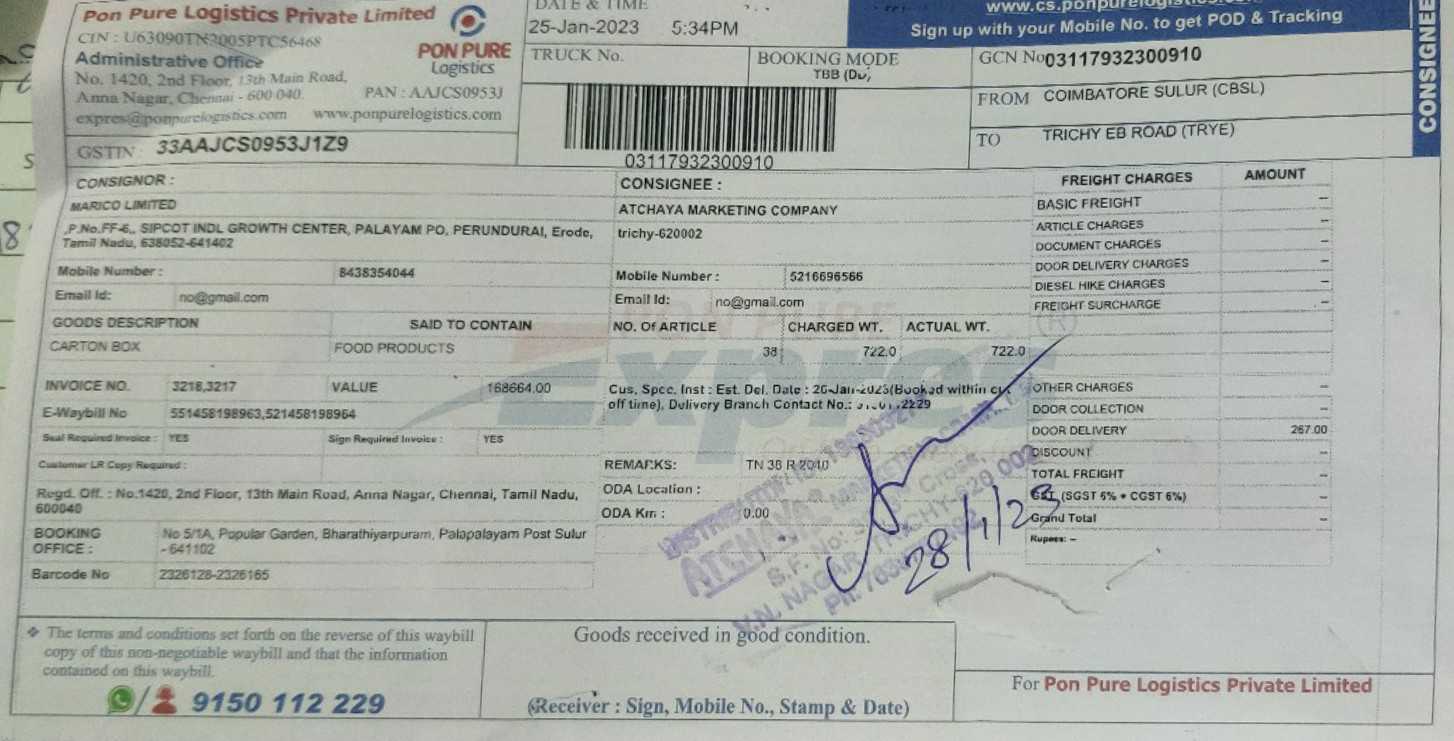 Pon Pure Logistics Private Limited
CIN : U63090TN2005PTC56468
Administrative Office
No. 1420, 2nd Floor, 13th Main Road,
Anna Nagar, Chennai - 600 040.
PAN : AAJCS0953J
expres@ponpurelogistics.com www.ponpurelogistics.com
GSTIN : 33AAJCS0953J1Z9
PON PURE
Logistics
DATE & TIME
25-Jan-2023 5:34PM
TRUCK No.
BOOKING MODE
TBB (DD)
03117932300910
Sign up with your Mobile No. to get POD & Tracking
GCN No 03117932300910
FROM COIMBATORE SULUR (CBSL)
TO TRICHY EB ROAD (TRYE)
CONSIGNEE
CONSIGNOR :
MARICO LIMITED
,P.No.FF-6,, SIPCOT INDL GROWTH CENTER, PALAYAM PO, PERUNDURAI, Erode,
Tamil Nadu, 638052-641402
Mobile Number : 8438354044
Email Id: no@gmail.com
CONSIGNEE :
ATCHAYA MARKETING COMPANY
trichy-620002
Mobile Number : 5216696566
Email Id: no@gmail.com
GOODS DESCRIPTION SAID TO CONTAIN NO. Of ARTICLE CHARGED WT. ACTUAL WT.
CARTON BOX FOOD PRODUCTS 38 722.0 722.0
INVOICE NO. 3218,3217 VALUE 168664.00
E-Waybill No 551458198963,521458198964
Seal Required Invoice : YES Sign Required Invoice : YES
Customer LR Copy Required :
Regd. Off. : No.1420, 2nd Floor, 13th Main Road, Anna Nagar, Chennai, Tamil Nadu,
600040
BOOKING OFFICE : No 5/1A, Popular Garden, Bharathiyarpuram, Palapalayam Post Sulur
- 641102
Barcode No 2326128-2326165
Cus. Spec. Inst : Est. Del. Date : 26-Jan-2023(Booked within cut
off time), Delivery Branch Contact No.:
REMARKS: TN 38 R 2040
ODA Location :
ODA Km : 0.00
FREIGHT CHARGES AMOUNT
BASIC FREIGHT –
ARTICLE CHARGES –
DOCUMENT CHARGES –
DOOR DELIVERY CHARGES –
DIESEL HIKE CHARGES –
FREIGHT SURCHARGE –
OTHER CHARGES –
DOOR COLLECTION –
DOOR DELIVERY 267.00
DISCOUNT –
TOTAL FREIGHT –
GST (SGST 6% + CGST 6%) –
Grand Total –
Rupees: –
PON PURE
Expres
ATCHAYA
S.F. No:
V.N. NAGAR, TRICHY-620 002
28/1/23
❖ The terms and conditions set forth on the reverse of this waybill
copy of this non-negotiable waybill and that the information
contained on this waybill.
9150 112 229
Goods received in good condition.
(Receiver : Sign, Mobile No., Stamp & Date)
For Pon Pure Logistics Private Limited